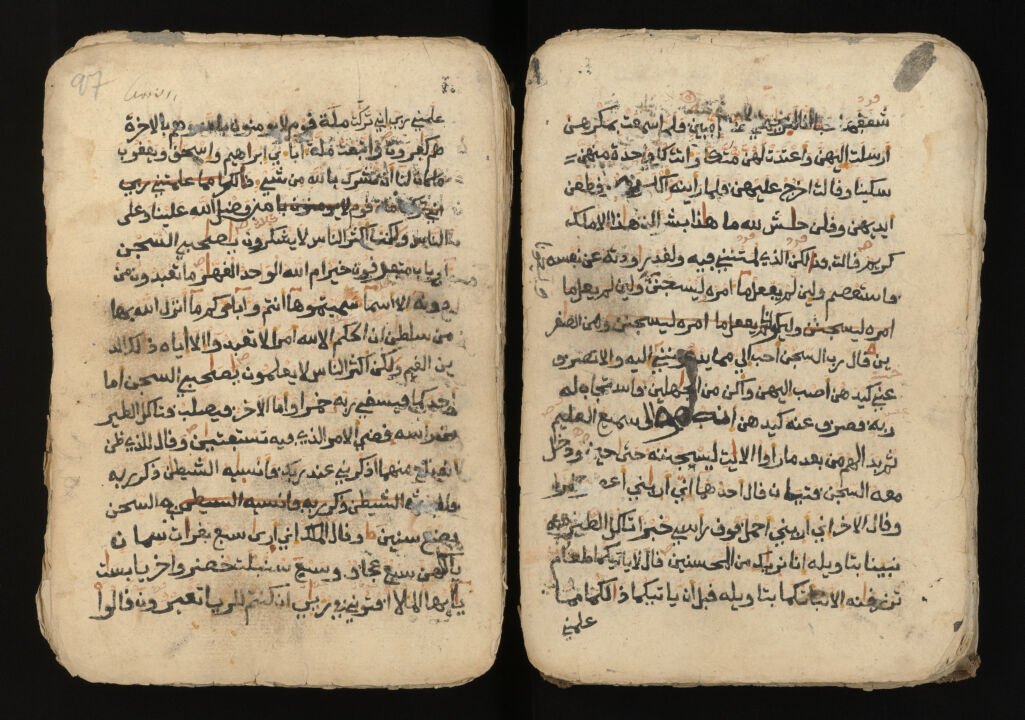 شغفها حبا فلما سمعت بمكرهن
ارسلت اليهن واعتدت لهن متكا واتت كل وحدة منهن
سكينا وقالت اخرج عليهن فلما راينه وقطعن
ايديهن وقلن حش لله ما هذا بشرا ان هذا الا ملك
كريم قالت فذلكن الذي لمتنني فيه ولقد رودته عن نفسه
فاستعصم ولين لم يفعل ما امره ليسجنن ولين لم يفعل ما
امره ليسجنن وليكونا يفعل ما امره ليسجنن ومن الصغر
ين قال رب السجن احب الي مما يدعونني اليه والا تصرف
عني كيدهن اصب اليهن واكن من الجهلين فاستجاب له
ربه فصرف عنه كيدهن انه هو السميع العليم
ثم بدا لهم من بعد ما راوا الايت ليسجننه حتى حين ودخل
معه السجن فتيان قال احدهما اني اريني خمرا
وقال الاخر اني اريني احمل فوق راسي خبزا تاكل الطير منه
نبينا بتاويله انا نريك من المحسنين قال لا ياتيكما طعام
ترزقنه الا نباتكما بتاويله قبل ان ياتيكما ذلكما مما
علمني
97
علمني ربي اني تركت ملة قوم لا يومنون بالله وهم بالاخرة
هم كفرون واتبعت ملة اباي ابراهيم واسحق ويعقوب
ما كان لنا ان نشرك بالله من شيي ذلكما مما علمني ربي
اني تركت ملة قوم لا يومنون با من فضل الله علينا وعلى
الناس ولكن اكثر الناس لا يشكرون يصحبي السجن
ارباب متفرقون خير ام الله الوحد القهار ما تعبدون من
دونه الا اسما سميتموها انتم واباوكم ما انزل الله بها
من سلطن ان الحكم الا لله امر الا تعبدوا الا اياه ذلك الد
ين القيم ولكن اكثر الناس لا يعلمون يصحبي السجن اما
احدكما فيسقي ربه خمرا واما الاخر فيصلب فتاكل الطير
من راسه قضي الامر الذي فيه تستفتين وقال للذي ظن
انه ناج منهما اذكرني عند ربك فانسيه الشيطن ذكر ربه
فلبث الشيطن ذكر ربه فانسيه الشيطن في السجن
بضع سنين وقال الملك اني ارى سبع بقرات سمان
ياكلهن سبع عجاف وسبع سنبلت خضر واخر يابست
يايها الملا افتوني في رءيي ان كنتم للريا تعبرون قالوا